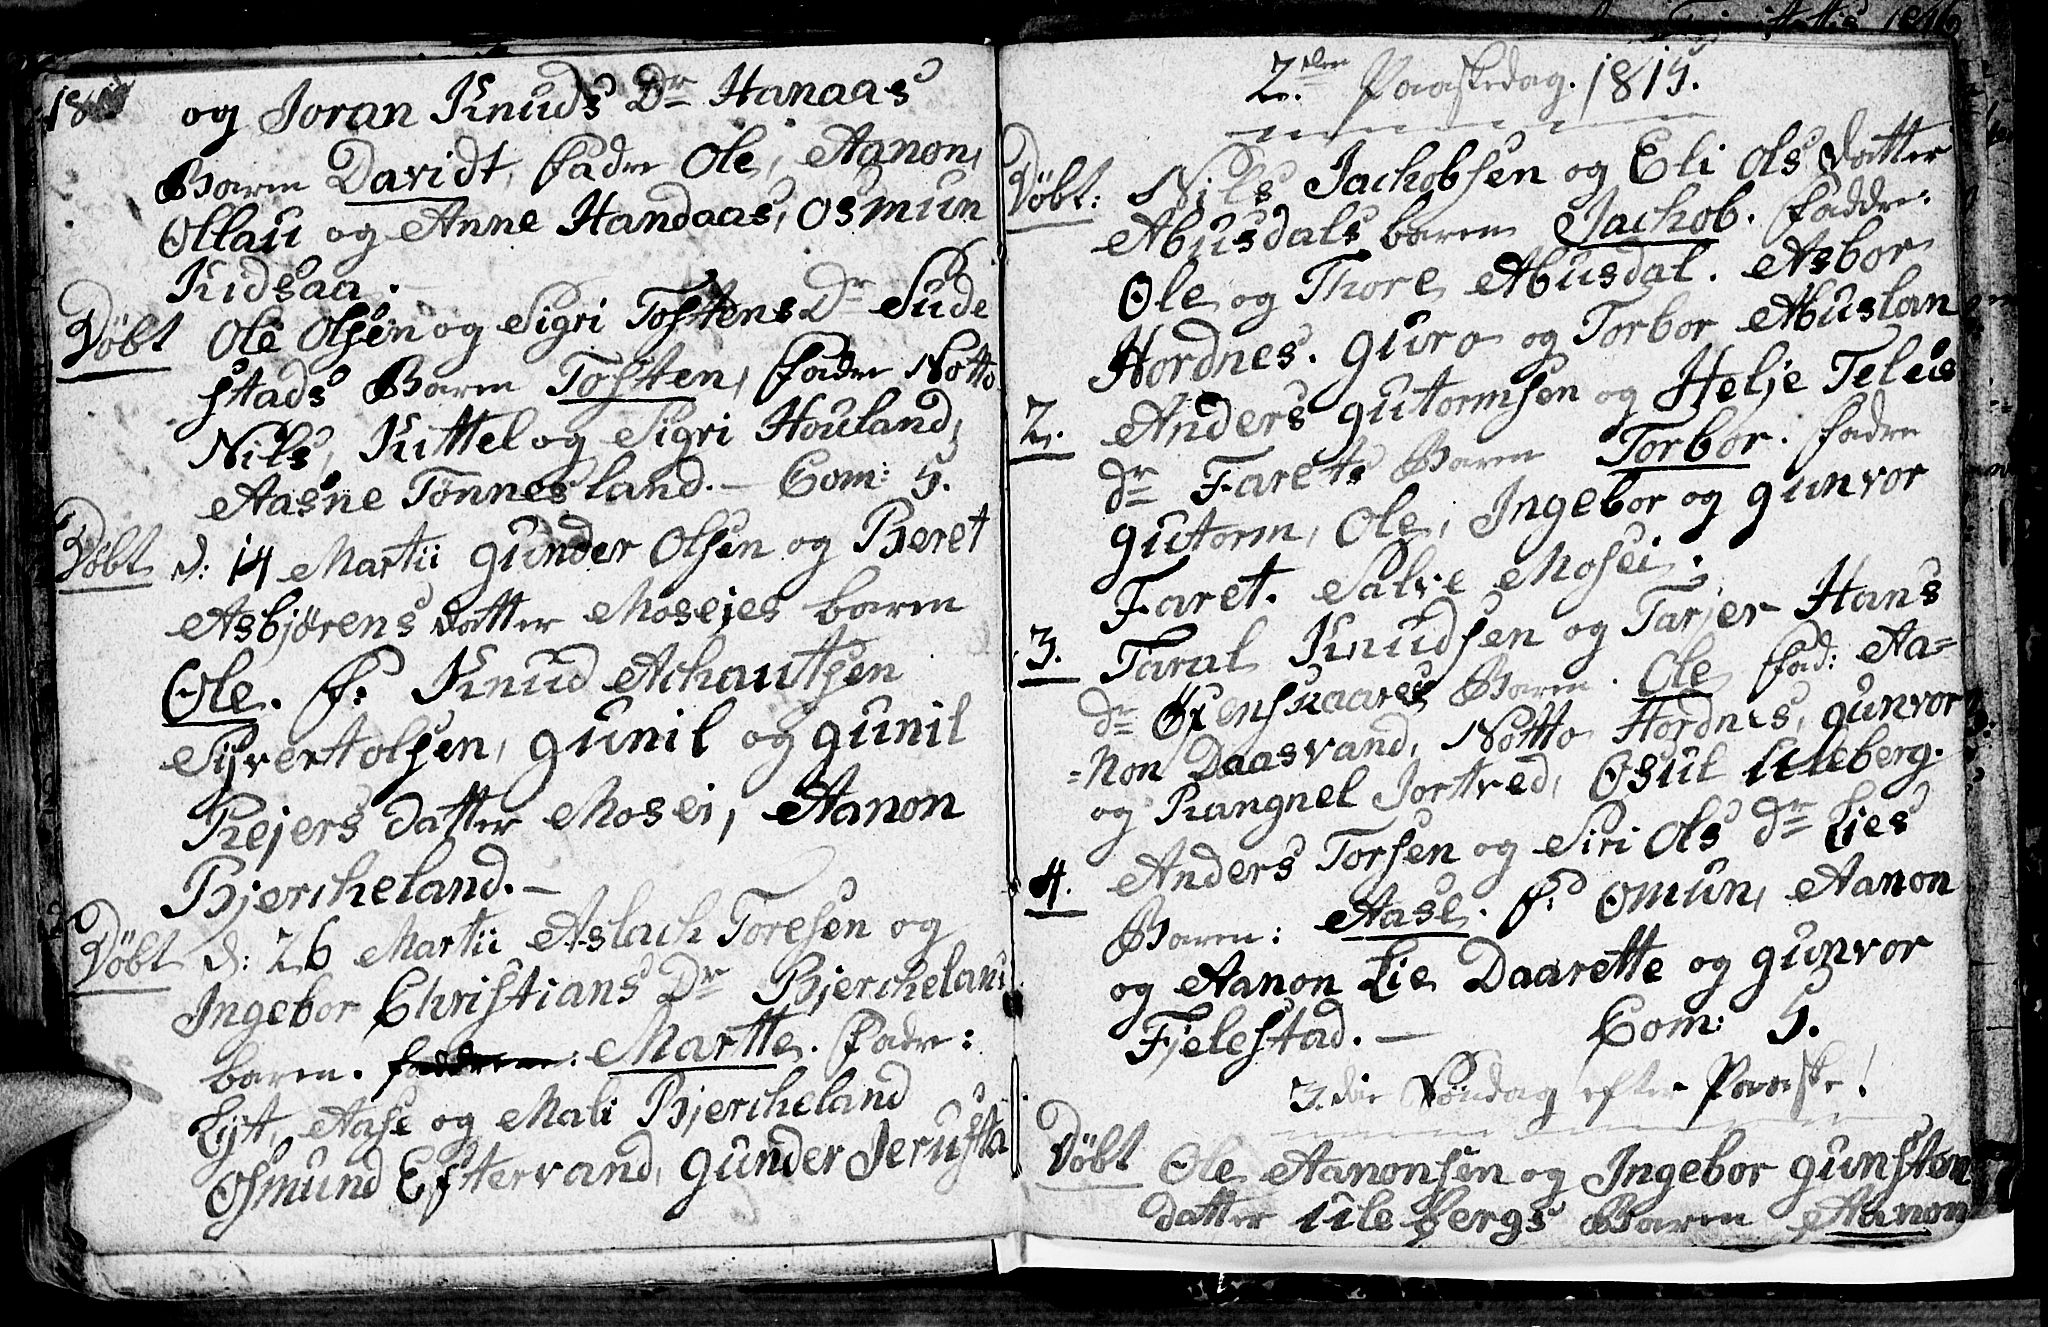 og Joran Knuds Dr Hanaas
Barn Davidt, fadr Ole, Aanon,
Ollau og Anne Handaas, Osmun
Kidsaa.
Döbt Ole Olsen og Sigri Tostens Dr Sude
stads Barn Tosten, fadr Notto
Nils, Kittel og Sigri Houland,
Aasne Tönnesland. - Com: 5.
Döbt d: 14 Martii Gunder Olsen og Beret
Asbjörens datter Moseies barn
Ole. F. Knud Achautsen
Syvert Olsen, gunil og gunil
Rejers datter Mosei, Aanon
Bjercheland. -
Döbt d: 26 Martii Aslach Toresen og
Ingebor Christians Dr Bjercheland
barn. Martte. fadr:
Lyt, Aase og Mali Bjercheland
Osmund Eftervand, gunder Jerusta
2den Paaskedag. 1815.
Döbt: Nils Jachobsen og Eli Ols datter
Abusdals barn Jachob. faddr:
Ole og Thore Abusdal. Asbor
Hordnes. guro og Torbor Abuslan
2. Anders gutormsen og Helje Teleis
dr Farets Barn Torbor. fadr
gutorm, Ole, Ingebor og gunvor
Faret. Salve Mosei.
3. Taral Knudsen og Tarjer Hans
dr Öxenskaares Barn. Ole fad: Aa=
=non Daasvand, Notto Hordnes, gunvor
og Rangnel Jortved, Osul Lileberg.
4. Anders Torsen og Siri Ols dr Lies
Barn: Aase. F. Omun, Aanon
og Aanon Lie Daarette og gunvor
Fjelestad. - Com: 5.
3die Söndag efter Paaske!
Döbt Ole Aanonsen og Ingebor gunsten
datter Lilebergs Barn Aanon